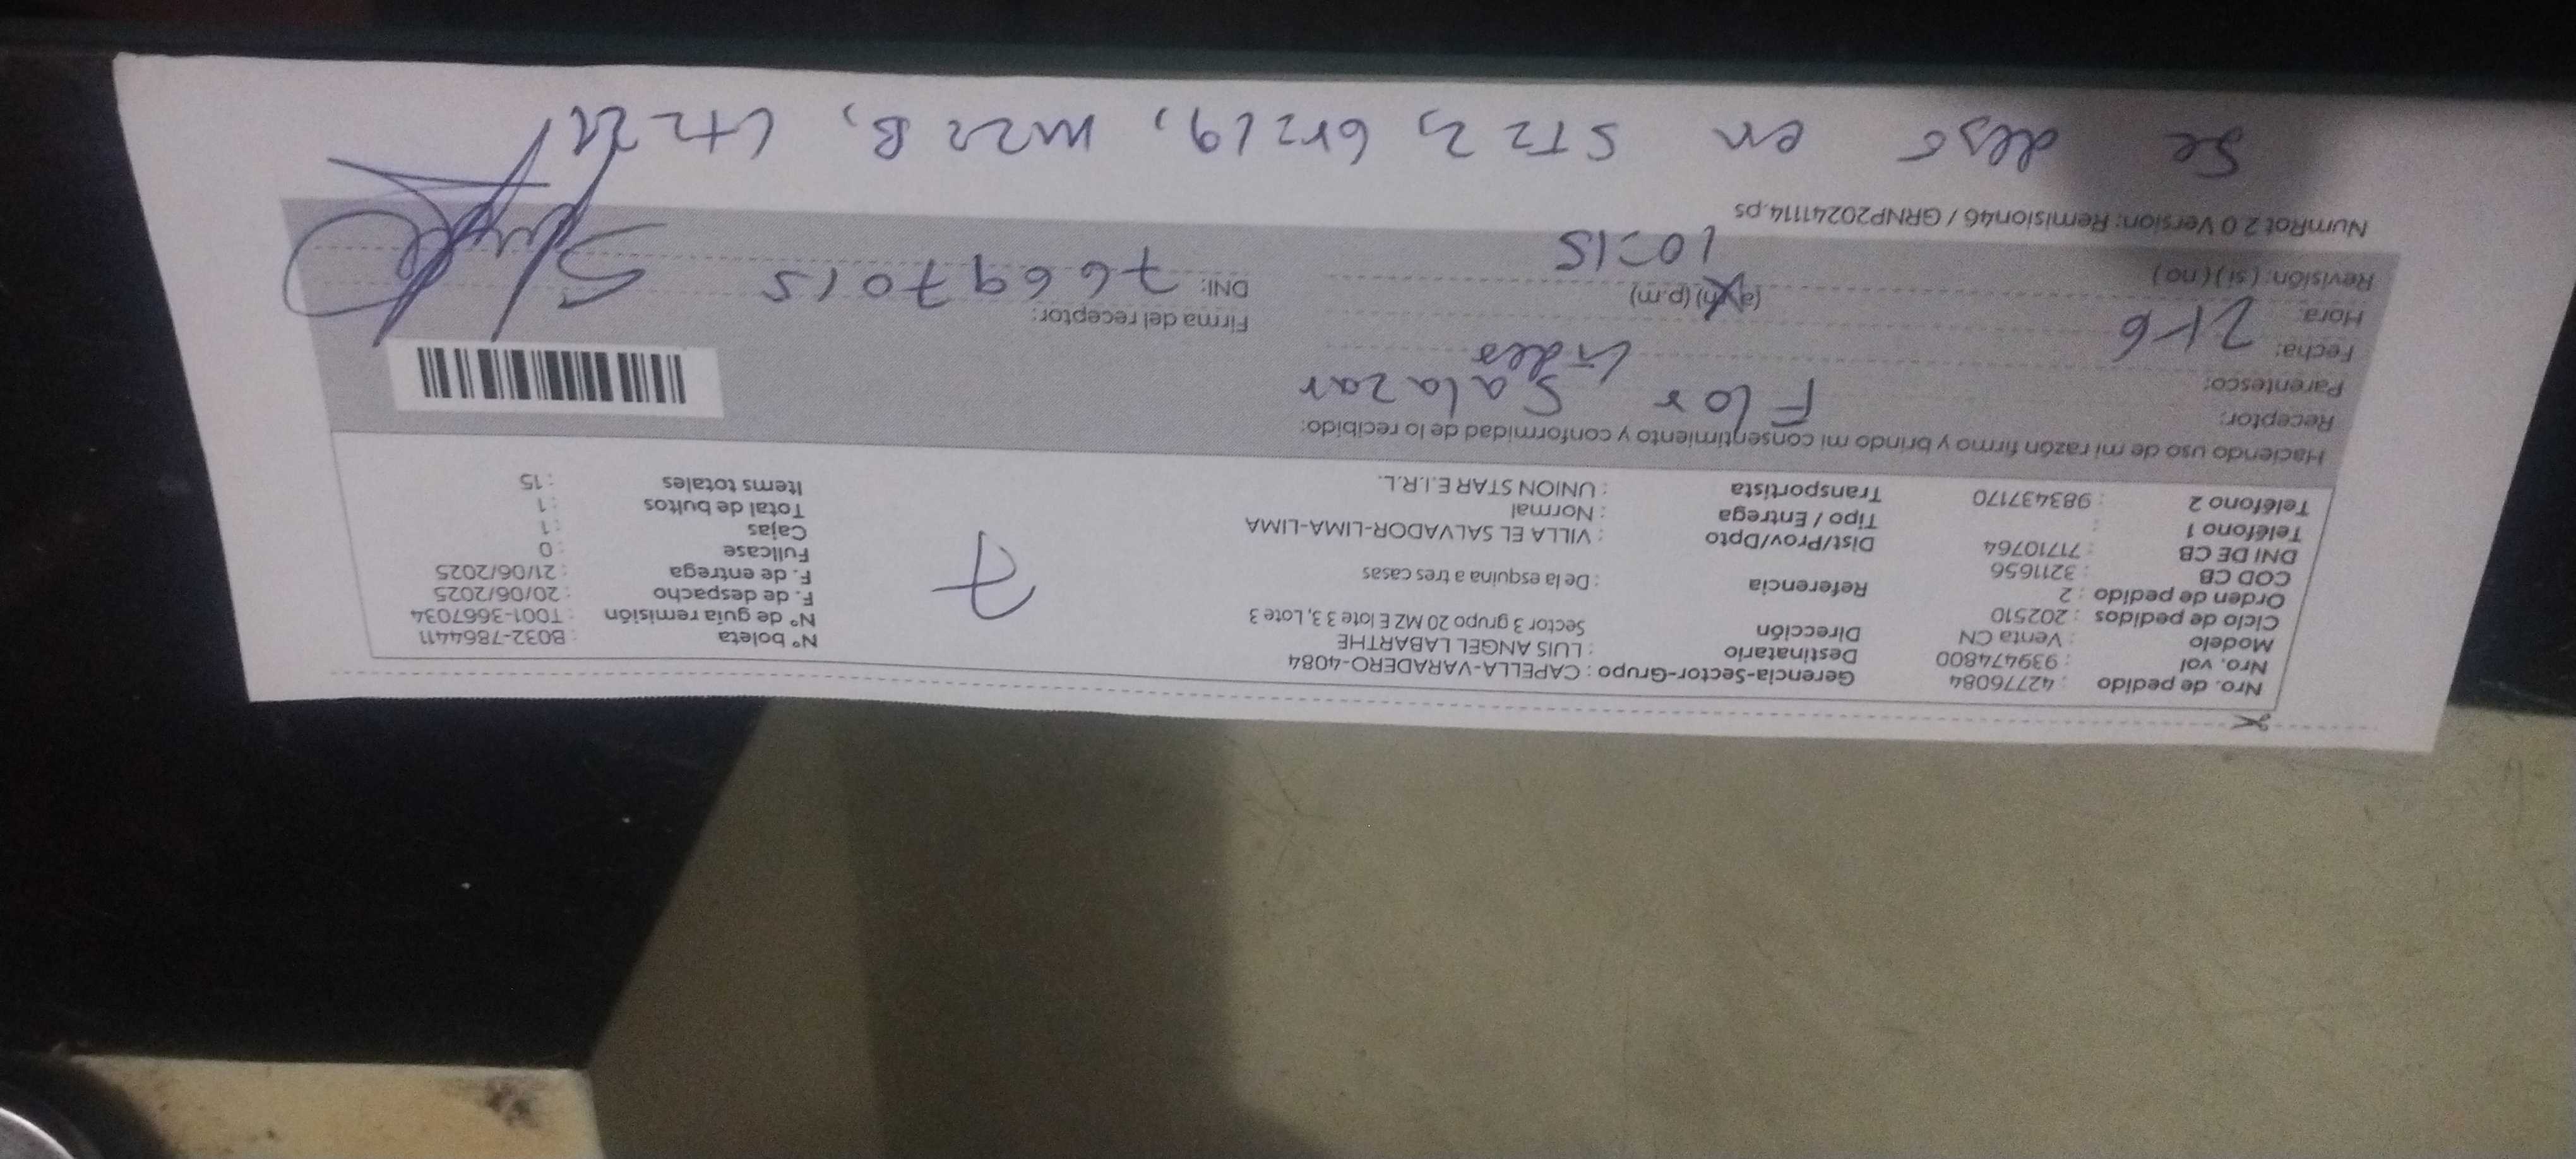 Nro. de pedido : 42776084 Gerencia-Sector-Grupo : CAPELLA-VARADERO-4084 N° boleta : B032-7864411
Nro. vol : 939474800 Destinatario : LUIS ANGEL LABARTHE N° de guía remisión : T001-3667034
Modelo : Venta CN Dirección Sector 3 grupo 20 MZ E lote 3 3, Lote 3 F. de despacho : 20/06/2025
Ciclo de pedidos : 202510 Referencia : De la esquina a tres casas F. de entrega : 21/06/2025
Orden de pedido : 2 Dist/Prov/Dpto : VILLA EL SALVADOR-LIMA-LIMA Fullcase : 0
COD CB : 3211656 Tipo / Entrega : Normal Cajas : 1
DNI DE CB : 71710764 Transportista : UNION STAR E.I.R.L. Total de bultos : 1
Teléfono 1 : Items totales : 15
Teléfono 2 : 983437170
7
Haciendo uso de mi razón firmo y brindo mi consentimiento y conformidad de lo recibido:
Receptor: Flor Salazar
Parentesco: Lider
Fecha: 21-6
Hora: (a.m) (p.m) 10:15
Firma del receptor:
DNI: 76697015
Revisión: (si) (no)
NumRot 2.0 Version: Remision46 / GRNP20241114.ps
Se dejó en ST2 2, Gr219, M22 B, Lt2 21